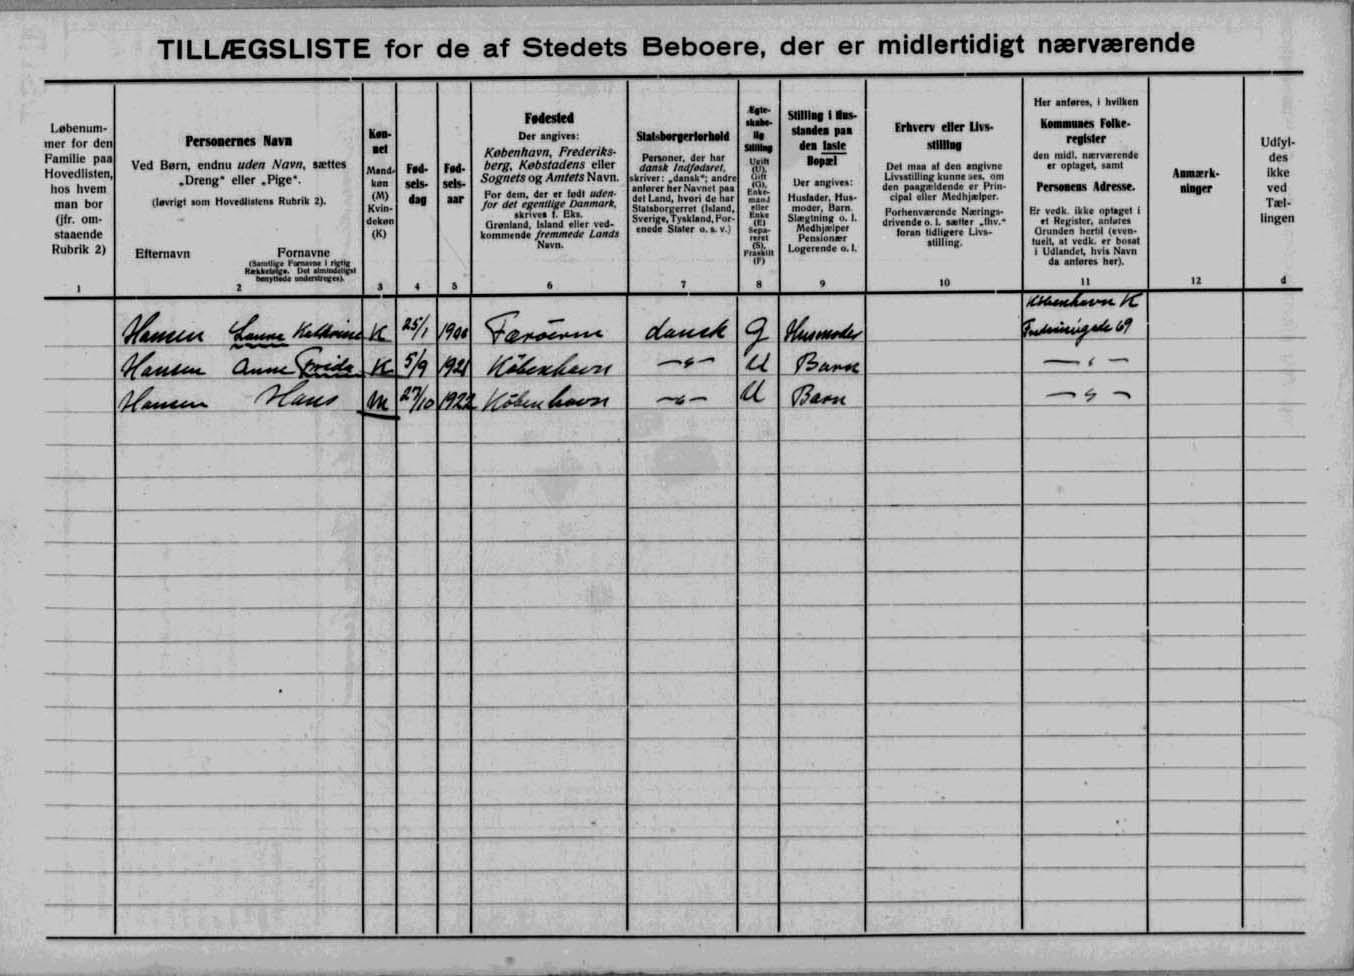 TILLÆGSLISTE for de af Stedets Beboere, der er midlertidigt nærværende
Løbenum-
mer for den
Familie paa
Hovedlisten,
hos hvem
man bor
(jfr. om-
staaende
Rubrik 2)
1
Personernes Navn
Ved Børn, endnu uden Navn, sættes
„Dreng" eller „Pige".
(Iøvrigt som Hovedlistens Rubrik 2).
Efternavn
Fornavne
(Samtlige Fornavne i rigtig
Rækkefølge. Det almindeligst
benyttede understreges).
2
Køn-
net
Mand-
køn
(M)
Kvin-
dekøn
(K)
3
Fød-
sels-
dag
4
Fød-
sels-
aar
5
Fødested
Der angives:
København, Frederiks-
berg, Købstadens eller
Sognets og Amtets Navn.
For dem, der er født uden-
for det egentlige Danmark,
skrives f. Eks.
Grønland, Island eller ved-
kommende fremmede Lands
Navn.
6
Statsborgerforhold
Personer, der har
dansk Indfødsret,
skriver: „dansk"; andre
anfører her Navnet paa
det Land, hvori de har
Statsborgerret (Island,
Sverige, Tyskland, For-
enede Stater o. s. v.)
7
Ægte-
skabe-
lig
Stilling
Ugift
(U),
Gift
(G),
Enke-
mand
eller
Enke
(E)
Sepa-
reret
(S),
Fraskilt
(F)
8
Stilling i Hus-
standen paa
den faste
Bopæl
Der angives:
Husfader, Hus-
moder, Barn.
Slægtning o. l.
Medhjælper
Pensionær
Logerende o. l.
9
Erhverv eller Livs-
stilling
Det maa af den angivne
Livsstilling kunne ses, om
den paagældende er Prin-
cipal eller Medhjælper.
Forhenværende Nærings-
drivende o. l. sætter „fhv."
foran tidligere Livs-
stilling.
10
Her anføres, i hvilken
Kommunes Folke-
register
den midl. nærværende
er optaget, samt
Personens Adresse.
Er vedk. ikke optaget i
et Register, anføres
Grunden hertil (even-
tuelt, at vedk. er bosat
i Udlandet, hvis Navn
da anføres her).
11
Anmærk-
ninger
12
Udfyl-
des
ikke
ved
Tæl-
lingen
d
København K
Hansen Laura Kathrine K 25/1 1900 Færøerne dansk G Husmoder 69
Hansen Anna Frida K 5/9 1921 København -"- U Barn -"-
Hansen Hans M 27/10 1922 København -"- U Barn -"-